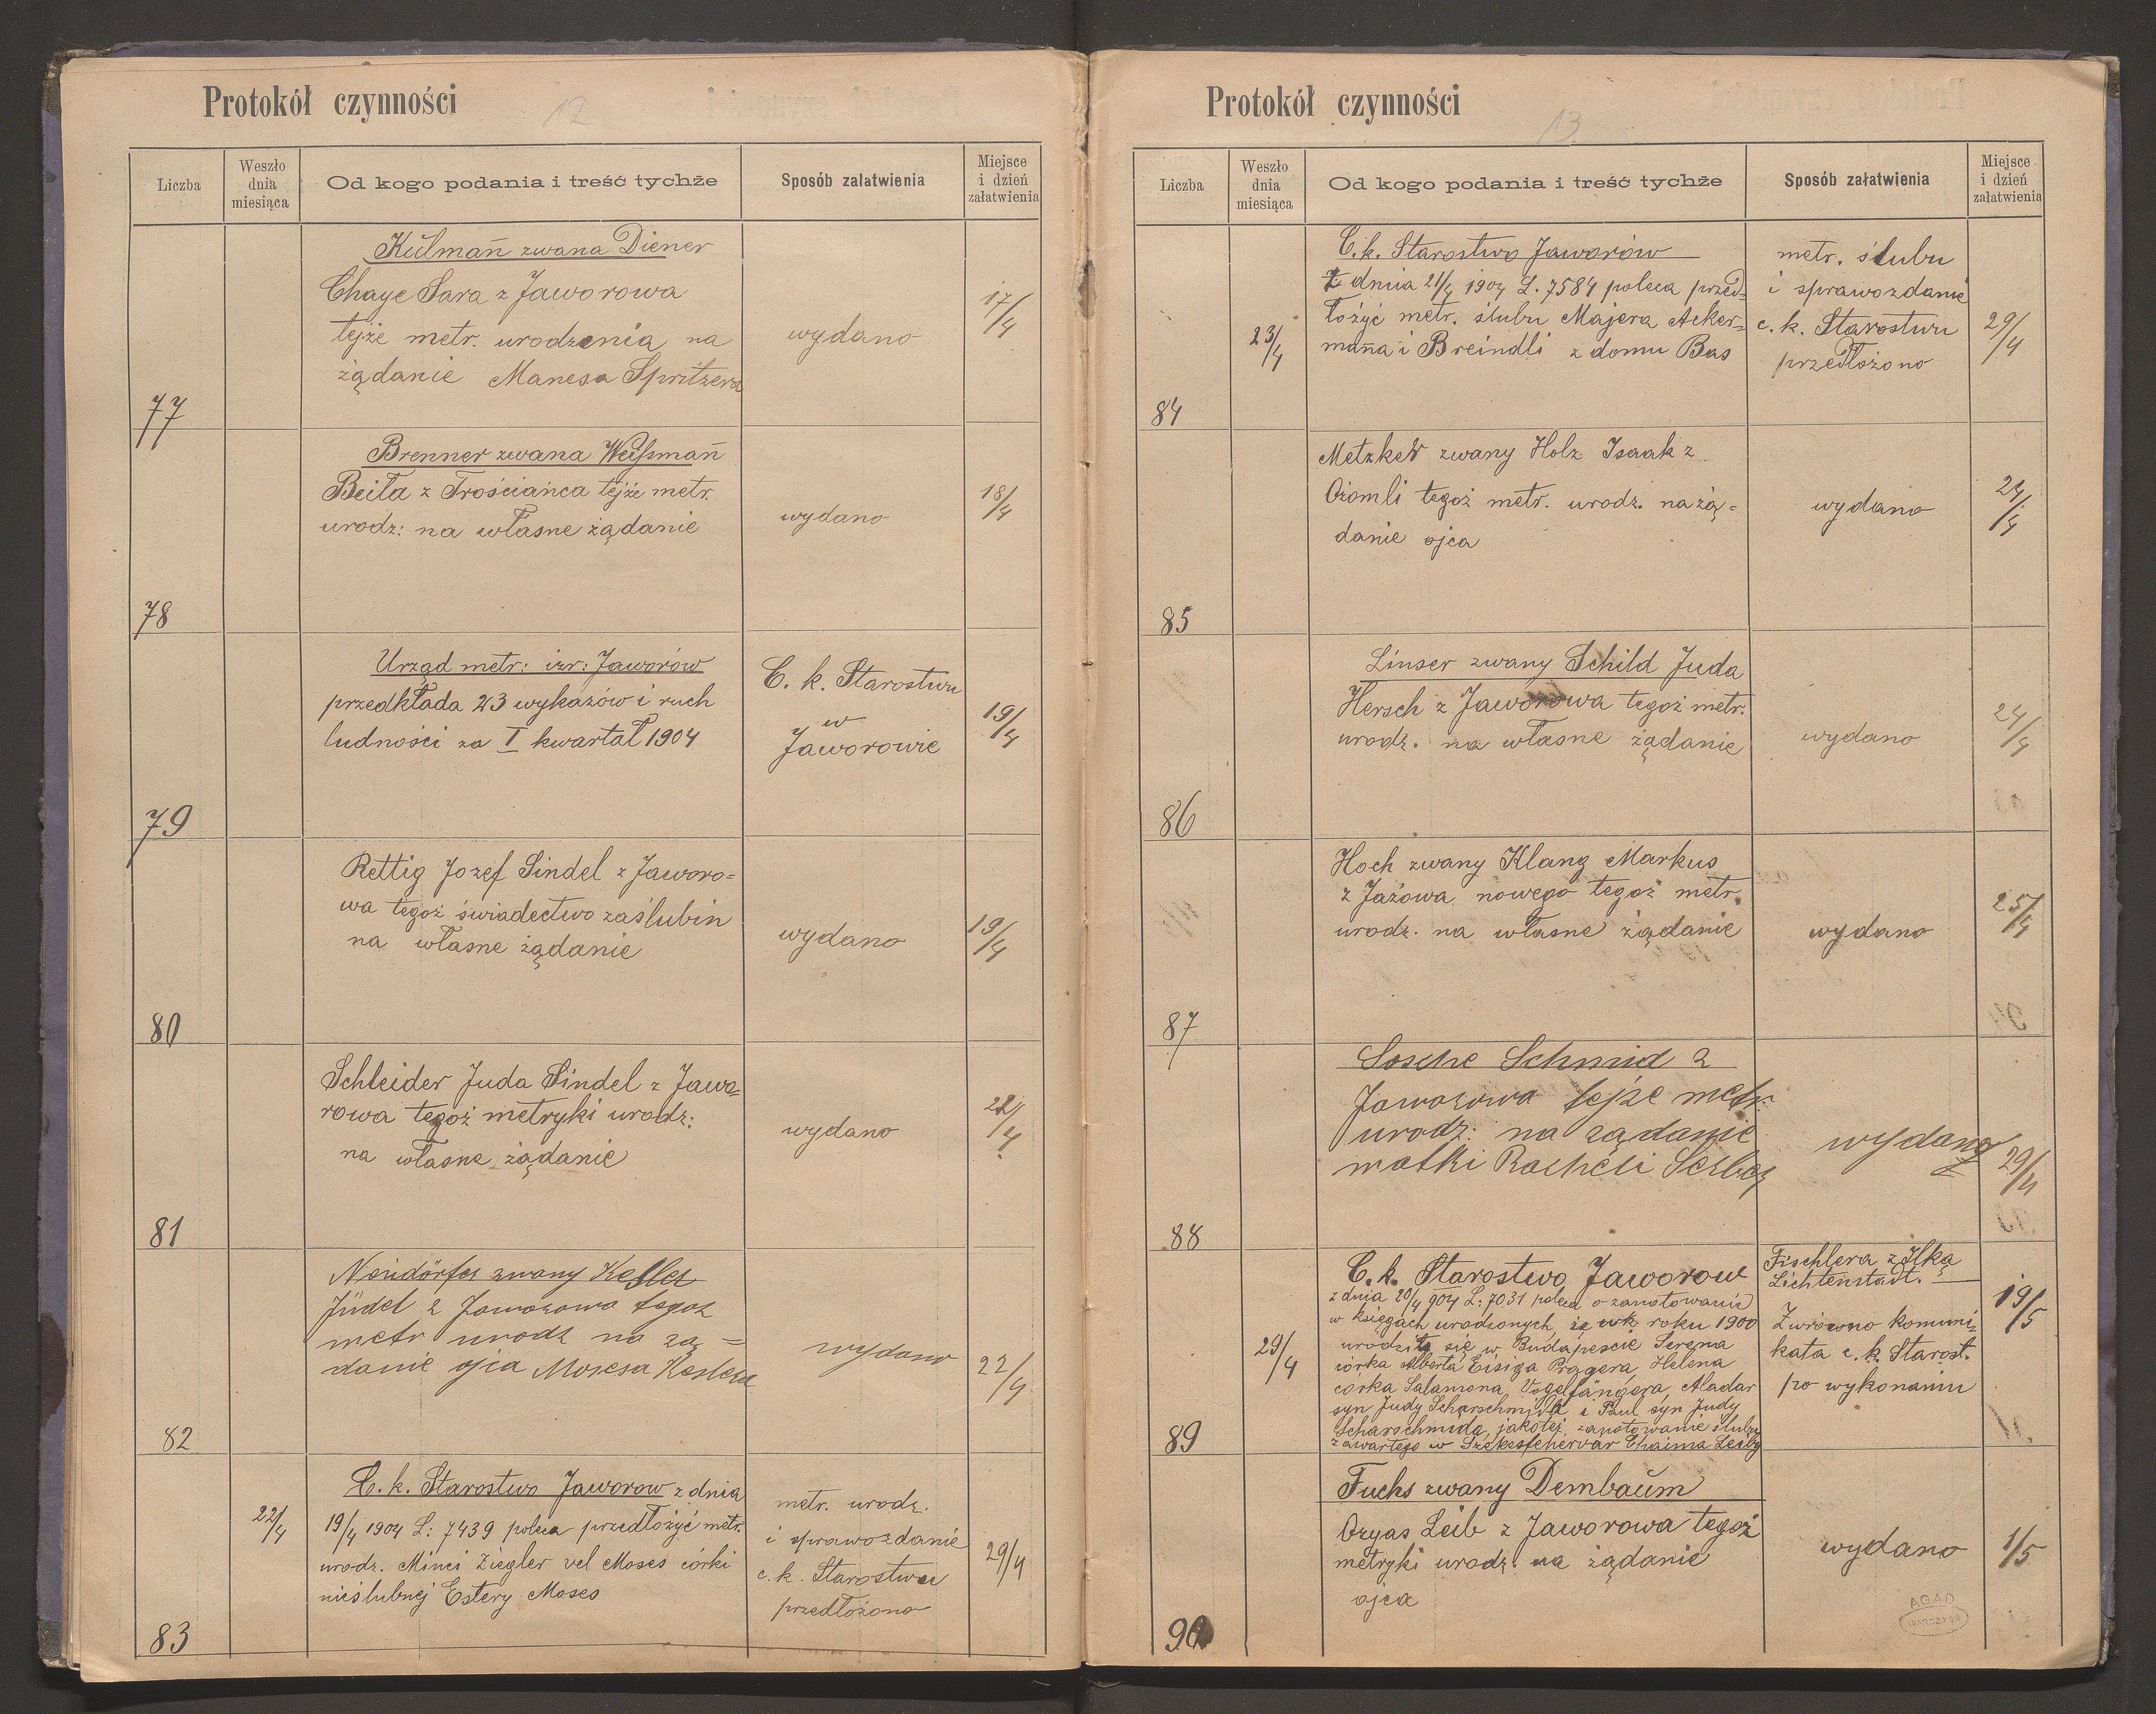 Protokół czynności
12
Liczba
Weszło dnia miesiąca
Od kogo podania i treść tychże
Sposób załatwienia
Miejsce i dzień załatwienia
Külmañ zwana Diener
Chaye Sara z Jaworowa
tejże metr. urodzenia na
żądanie Manesa Spritzera
wydano
17/4
77
Brenner zwana Weißmañ
Beila z Trościańca tejże metr.
urodz: na własne żądanie
wydano
18/4
78
Urząd metr: izr: Jaworów
przedkłada 23 wykazów i ruch
ludności za I kwartał 1904
C. k. Starostwu
w
Jaworowie
19/4
79
Rettig Jozef Sindel z Jaworo=
wa tegoż świadectwo zaślubin
na własne żądanie
wydano
19/4
80
Schleider Juda Sindel z Jawo=
rowa tegoż metryki urodz:
na własne żądanie
wydano
81
Neudörfer zwany Kesler
Jüdel z Jaworowa tegoz
metr urodz na zą=
danie ojca Mosesa Keslera
wydano
22/4
82
22/4
C. k. Starostwo Jaworow z dnia
19/4 1904 L: 7439 poleca przedłożyć metr.
urodz. Minci Ziegler vel Moses córki
nieślubnej Estery Moses
metr. urodz.
i sprawozdanie
c. k. Starostwu
przedłożono
29/4
83
Protokół czynności
13
Liczba
Weszło dnia miesiąca
Od kogo podania i treść tychże
Sposób załatwienia
Miejsce i dzień załatwienia
23/4
C. k. Starostwo Jaworów
z dnia 21/4 1904 L. 7584 poleca przed=
łożyć metr. ślubu Majera Acker=
mañna i Breindli z domu Bas
metr. ślubu
i sprawozdanie
c. k. Starostwu
przedłożono
29/4
84
Metzker zwany Holz Isaak z
Ożomli tegoż metr. urodz. na żą=
danie ojca
wydano
24/4
85
Linser zwany Schild Juda
Hersch z Jaworowa tegoż metr.
urodz. na własne żądanie
wydano
24/4
86
Hoch zwany Klang Markus
z Jażowa nowego tegoż metr.
urodz. na własne żądanie
wydano
25/4
87
Sosche Schmid z
Jaworowa tejże metr.
urodz: na ządanie
matki Racheli
wydano
29/4
88
29/4
C. k. Starostwo Jaworow
z dnia 20/4 904 L: 7031 poleca o zanotowanie
w księgach urodzonych, że wk roku 1900
urodziła się w Budapescie Serena
córka Alberta Eisiga Pragera, Helena
córka Salamona Vogelfängera, Aladar
syn Judy Scharschmida i Paul syn Judy
Scharschmida, jakotej zanotowanie ślubu
zawartego w Szekesfehervar Chaima Leiby
Fischlera z Ilką
Lichtenstadt.
Zwrócono komuni=
kata c. k. Starost.
po wykonaniu
19/5
89
Fuchs zwany Dembaŭm
Ozyas Leib z Jaworowa tegoż
metryki urodz. na żądanie
ojca
wydano
1/5
90
AGAD
WARSZAWA